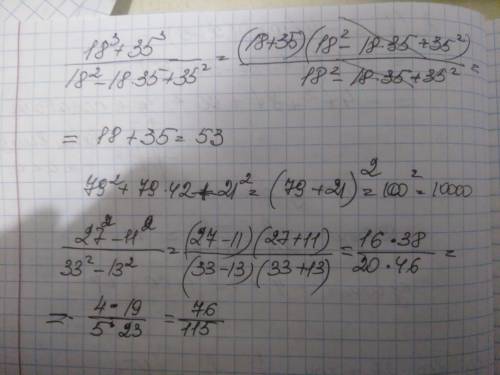 (18³+35³)/(18²-18·35+35²) = ((18+35)(18²-18·35+35²))/(18²-18·35+35²) =
= 18+35 = 53
79²+79·42+21² = (79+21)² = 100² = 10000
(27²-11²)/(33²-13²) = ((27-11)(27+11))/((33-13)(33+13)) = (16·38)/(20·46) =
= (4·19)/(5·23) = 76/115